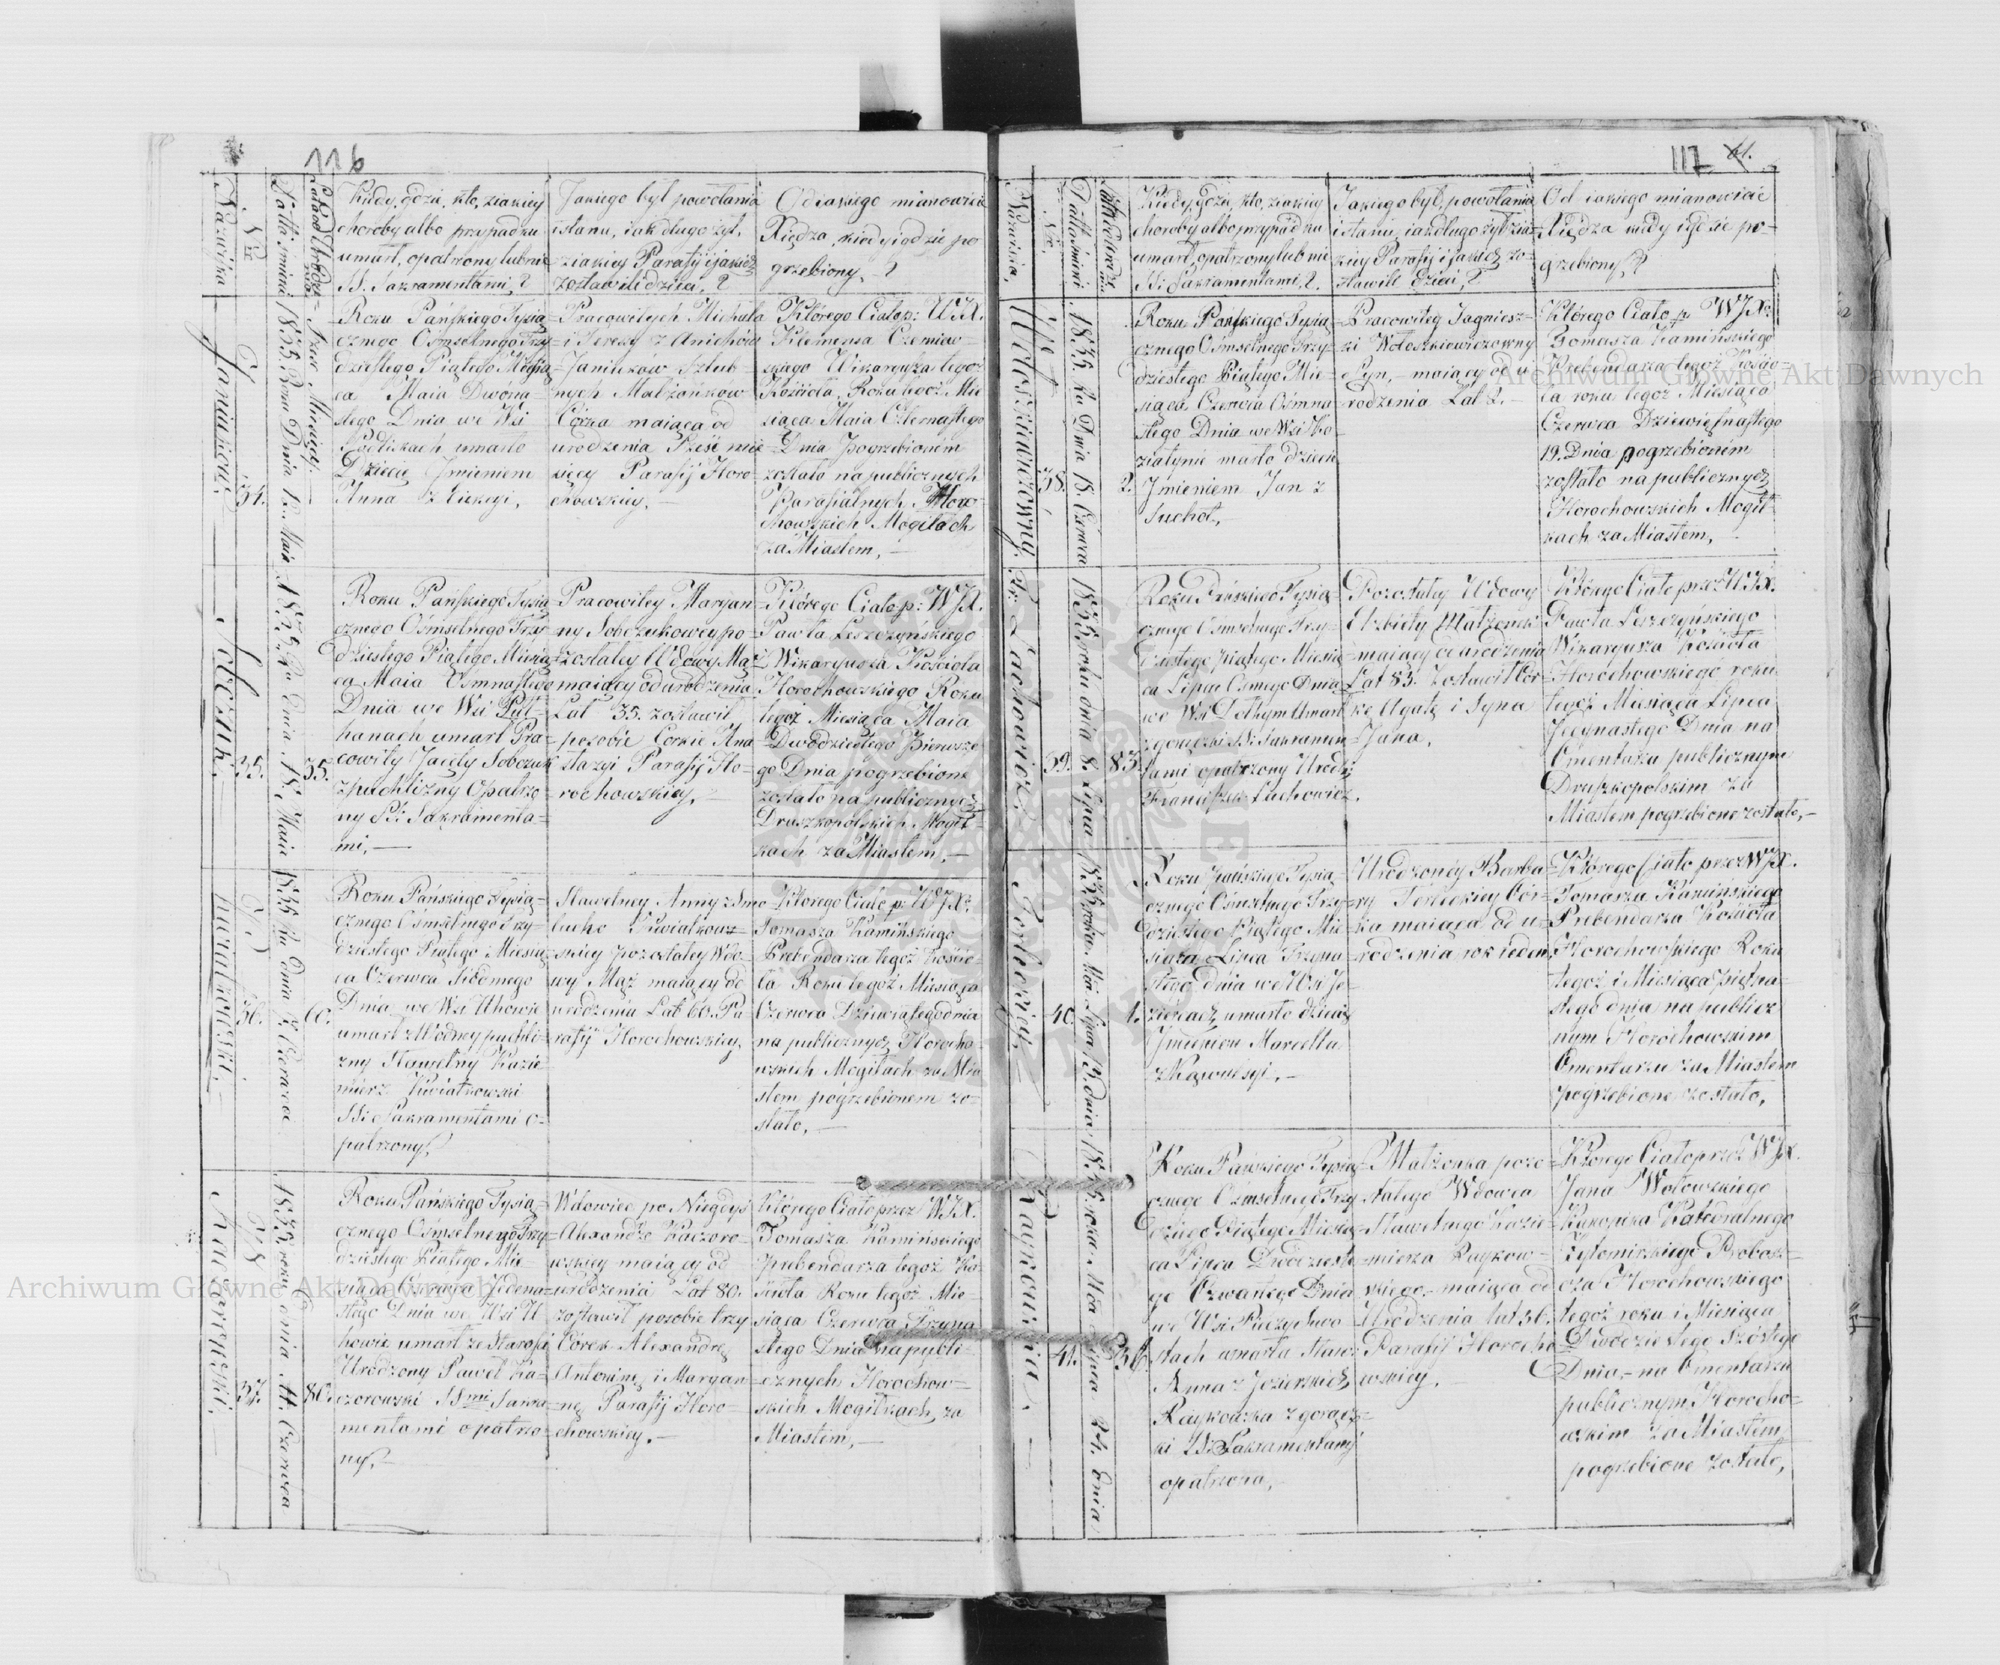 116
Nazwiska
Nro
Datta śmierci
Lata od Urodzenia
Kiedy, gdzie, kto, z iakiey
choroby albo przypadku
umarł, opatrzony lub nie
SS. Sakramentami,?
Jakiego był powołania
i stanu, iak długo żył,
z iakiey Parafij i jakież
zostawił dzieci,?
Od iakiego mianowicie
Xiędza, kiedy i gdzie po
grzebiony,?
34.
1835 Roku Dnia 12. Maia
Sześć Miesięcy
Roku Pańskiego Tysią
cznego Ośmsetnego Trzy
dziestego Piątego Miesią
ca Maia Dwóna
stego Dnia we Wsi
umarło
Dziecię Jmieniem
Anna
Pracowitych Michała
i Teresy z Anichów
Janiuków szlub
nych Małżonków
Córka maiąca od
urodzenia Sześć mie
sięcy Parafij Horo
chowskiey.
Którego Ciało p: WJX.
Klemensa Czerniaw
skiego Wikaryusza tegoż
Kościoła, Roku tegoż Mie
siąca Maia Czternastego
Dnia pogrzebionem
zostało na publicznych
Parafialnych Horo
chowskich Mogiłach
za Miastem,
Sobczuk.
35.
35.
Roku Pańskiego Tysią
cznego Ośmsetnego Trzy
dziestego Piątego Miesią
ca Maia Ośmnastego
Dnia we Wsi Pul
hanach umarł Pra
cowity Jacęty Sobczuk
z puchlizny Opatrzo
ny SS: Sakramenta
mi,
Pracowitey Maryan
ny Sobczukowey po
zostałey Wdowy Mąż
maiący od urodzenia
Lat 35. zostawił
po sobie Corkie Ana
stazyi Parafij Ho
rochowskiey,
Którego Ciało p: WJX.
Pawła Leszczyńskiego
Wikaryusza Kościoła
Horochowskiego Roku
tegoż Miesiąca Maia
Dwódziestego Pierwsze
go Dnia pogrzebione
zostało na publicznych
Druszkopolskich Mogił
kach za Miastem,
Kwiatkowski.
36.
60.
Roku Pańskiego Tysią
cznego Ośmsetnego Trzy
dziestego Piątego Miesią
ca Czerwca Siódmego
Dnia we Wsi Uhowie
umarł z Wodney puchli
zny Sławetny Kazie
mierz Kwiatkowski
SS: Sakramentami o
patrzony,
Sławetney Anny z Smo
lucho Kwiatkow
skiey pozostałey Wdo
wy Mąż maiący od
urodzenia Lat 60. Pa
rafij Horochowskiey,
Którego Ciało p: WJX.
Tomasza Kamińskiego
Prebendarza tegoż Kościo
ła Roku tegoż Miesiąca
Czerwca Dziewiątego dnia
na publicznych Horocho
wskich Mogiłach za Mia
stem pogrzebionem zo
stało,
Kaczorowski.
37.
1835 roku dnia 11. Czerwca
80.
Roku Pańskiego Tysią
cznego Ośmsetnego Trzy
dziestego Piątego Mie
siąca Czerwca Jedena
stego Dnia we Wsi U
howie umarł ze Starości
Urodzony Paweł Ka
czorowski SSmi Sakra
mentami opatrzo
ny,
Wdowiec po Niegdyś
Alexandrze Kaczoro
wskiey maiący od
urodzenia Lat 80.
zostawił po sobie trzy
Córek Alexandrę
Antoninę i Maryan
nę Parafij Horo
chowskiey.
Którego Ciało przez WJX.
Tomasza Kamińskiego
prebendarza tegoż Ko
ścioła Roku tegoż Mie
siąca Czerwca Trzyna
stego Dnia na publi
cznych Horochow
skich Mogiłkach, za
Miastem,
117 61.
Nazwiska,
Nro.
Datta śmierci
Kiedy, gdzie, kto, z iakiey
choroby albo przypadku
umarł, opatrzony lub nie
SS: Sakramentami,?
Jakiego był, powołania
i stanu, iak długo żył, z ia
kiey Parafij i jakież zo
stawił dzieci,?
Od iakiego mianowicie
Xiędza kiedy i gdzie po
grzebiony,?
Wołoszkiewiczowny.
38.
1835. Ru Dnia 18. Czerwca
2.
Roku Pańskiego Tysią
cznego Ośmsetnego Trzy
dziestego Piątego Mie
siąca Czerwca Ośmna
stego Dnia we Wsi Ko
ziatynie umarło dziecie
Jmieniem Jan z
Suchot,
Pracowitey Jagniesz
ki Wołoszkiewiczowny
Syn, maiący od u
rodzenia Lat 2.
Którego Ciało p WJX:
Tomasza Kamińskiego
Prebendarza tegoż Kościo
ła roku tegoż Miesiąca
Czerwca Dziewiętnastego
19. Dnia pogrzebionem
zostało na publicznych
Horochowskich Mogił
kach za Miastem,
Fr: Lachowicz.
39.
1835 roku dnia 8. Lipca
83.
Roku Pańskiego Tysią
cznego Ośmsetnego Trzy
dziestego piątego Miesią
ca Lipca Osmego Dnia
we Wsi umarł
z gorączki SS: Sakramen
tami opatrzony Urodz:
Franciszek Lachowicz.
Pozostałey Wdowy
Elżbiety Małżonek
maiący od urodzenia
Lat 83. zostawił Cór
kę Agatę i Syna
Jana.
Którego Ciało przez WJX.
Pawła Leszczyńskiego
Wikaryusza Kościoła
Horochowskiego roku
tegoż Miesiąca Lipca
Jedynastego Dnia na
Cmentarzu publicznym
Druszkopolskim za
Miastem pogrzebione zostało,
Terleckiey.
40.
1.
Roku Pańskiego Tysią
cznego Ośmsetnego Trzy
dziestego Piątego Mie
siąca Lipca Trzyna
stego dnia we Wsi Je
ziorkach umarło dziecię
Jmieniem Marcella
z Kąwulsyi,
Urodzoney Barba
ry Terleckiey Cór
ka maiąca od u
rodzenia rok ieden,
Którego Ciało przez WJX.
Tomasza Kamińskiego
Prebendarza Kościoła
Horochowskiego Roku
tegoż i Miesiąca piętna
stego dnia na publicz
nym Horochowskim
Cmentarzu za Miastem
pogrzebione zostało,
Raykowska.
41.
36.
Roku Pańskiego Tysią
cznego Ośmsetnego Trzy
dziestego Piątego Miesią
ca Lipca Dwódzieste
go Czwartego Dnia
we Wsi Pieczychwo
stach umarła Sław:
Anna z Jezierskich
Raykowska z gorącz
ki SS: Sakramentami
opatrzona,
Małżonka pozo
stałego Wdowca
Sławetnego Kazie
mierza Raykow
skiego, maiąca od
Urodzenia lat 36.
Parafij Horocho
wskiey.
Którego Ciało przez WJX.
Jana Wołowskiego
Kanonika Katedralnego
Żytomirskiego Probosz
cza Horochowskiego
tegoż roku i Miesiąca
Dwódziestego Szóstego
Dnia, na Cmentarzu
publicznym Horocho
wskim za Miastem
pogrzebione zostało,
Archiwum Główne Akt Dawnych
Archiwum Główne Akt Dawnych